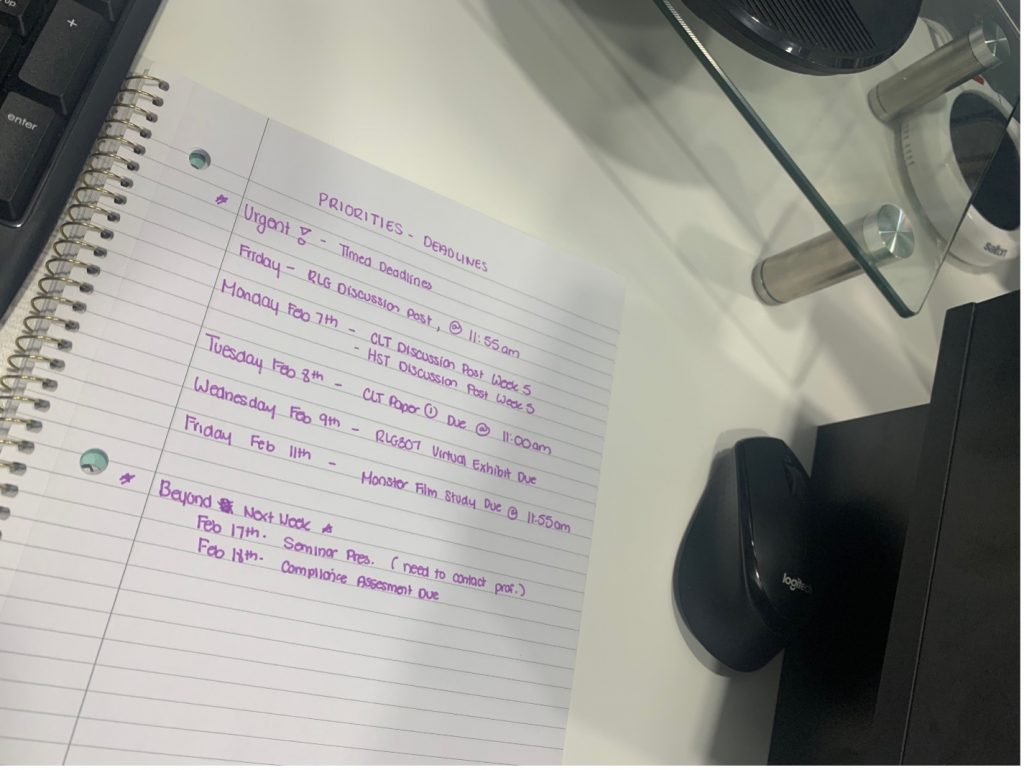 +
enter
PRIORITIES - DEADLINES
* Urgent ! - Timed Deadlines
Friday - RLG Discussion Post, @ 11:55am
Monday Feb 7th - CLT Discussion Post Week 5
- HST Discussion Post Week 5
Tuesday Feb 8th - CLT Paper ① Due @ 11:00am
Wednesday Feb 9th - RLG307 Virtual Exhibit Due
Friday Feb 11th - Monster Film Study Due @ 11:55am
* Beyond Next Week *
Feb 17th. Seminar Pres. (need to contact prof.)
Feb 18th. Compliance Assesment Due
logitech
salton